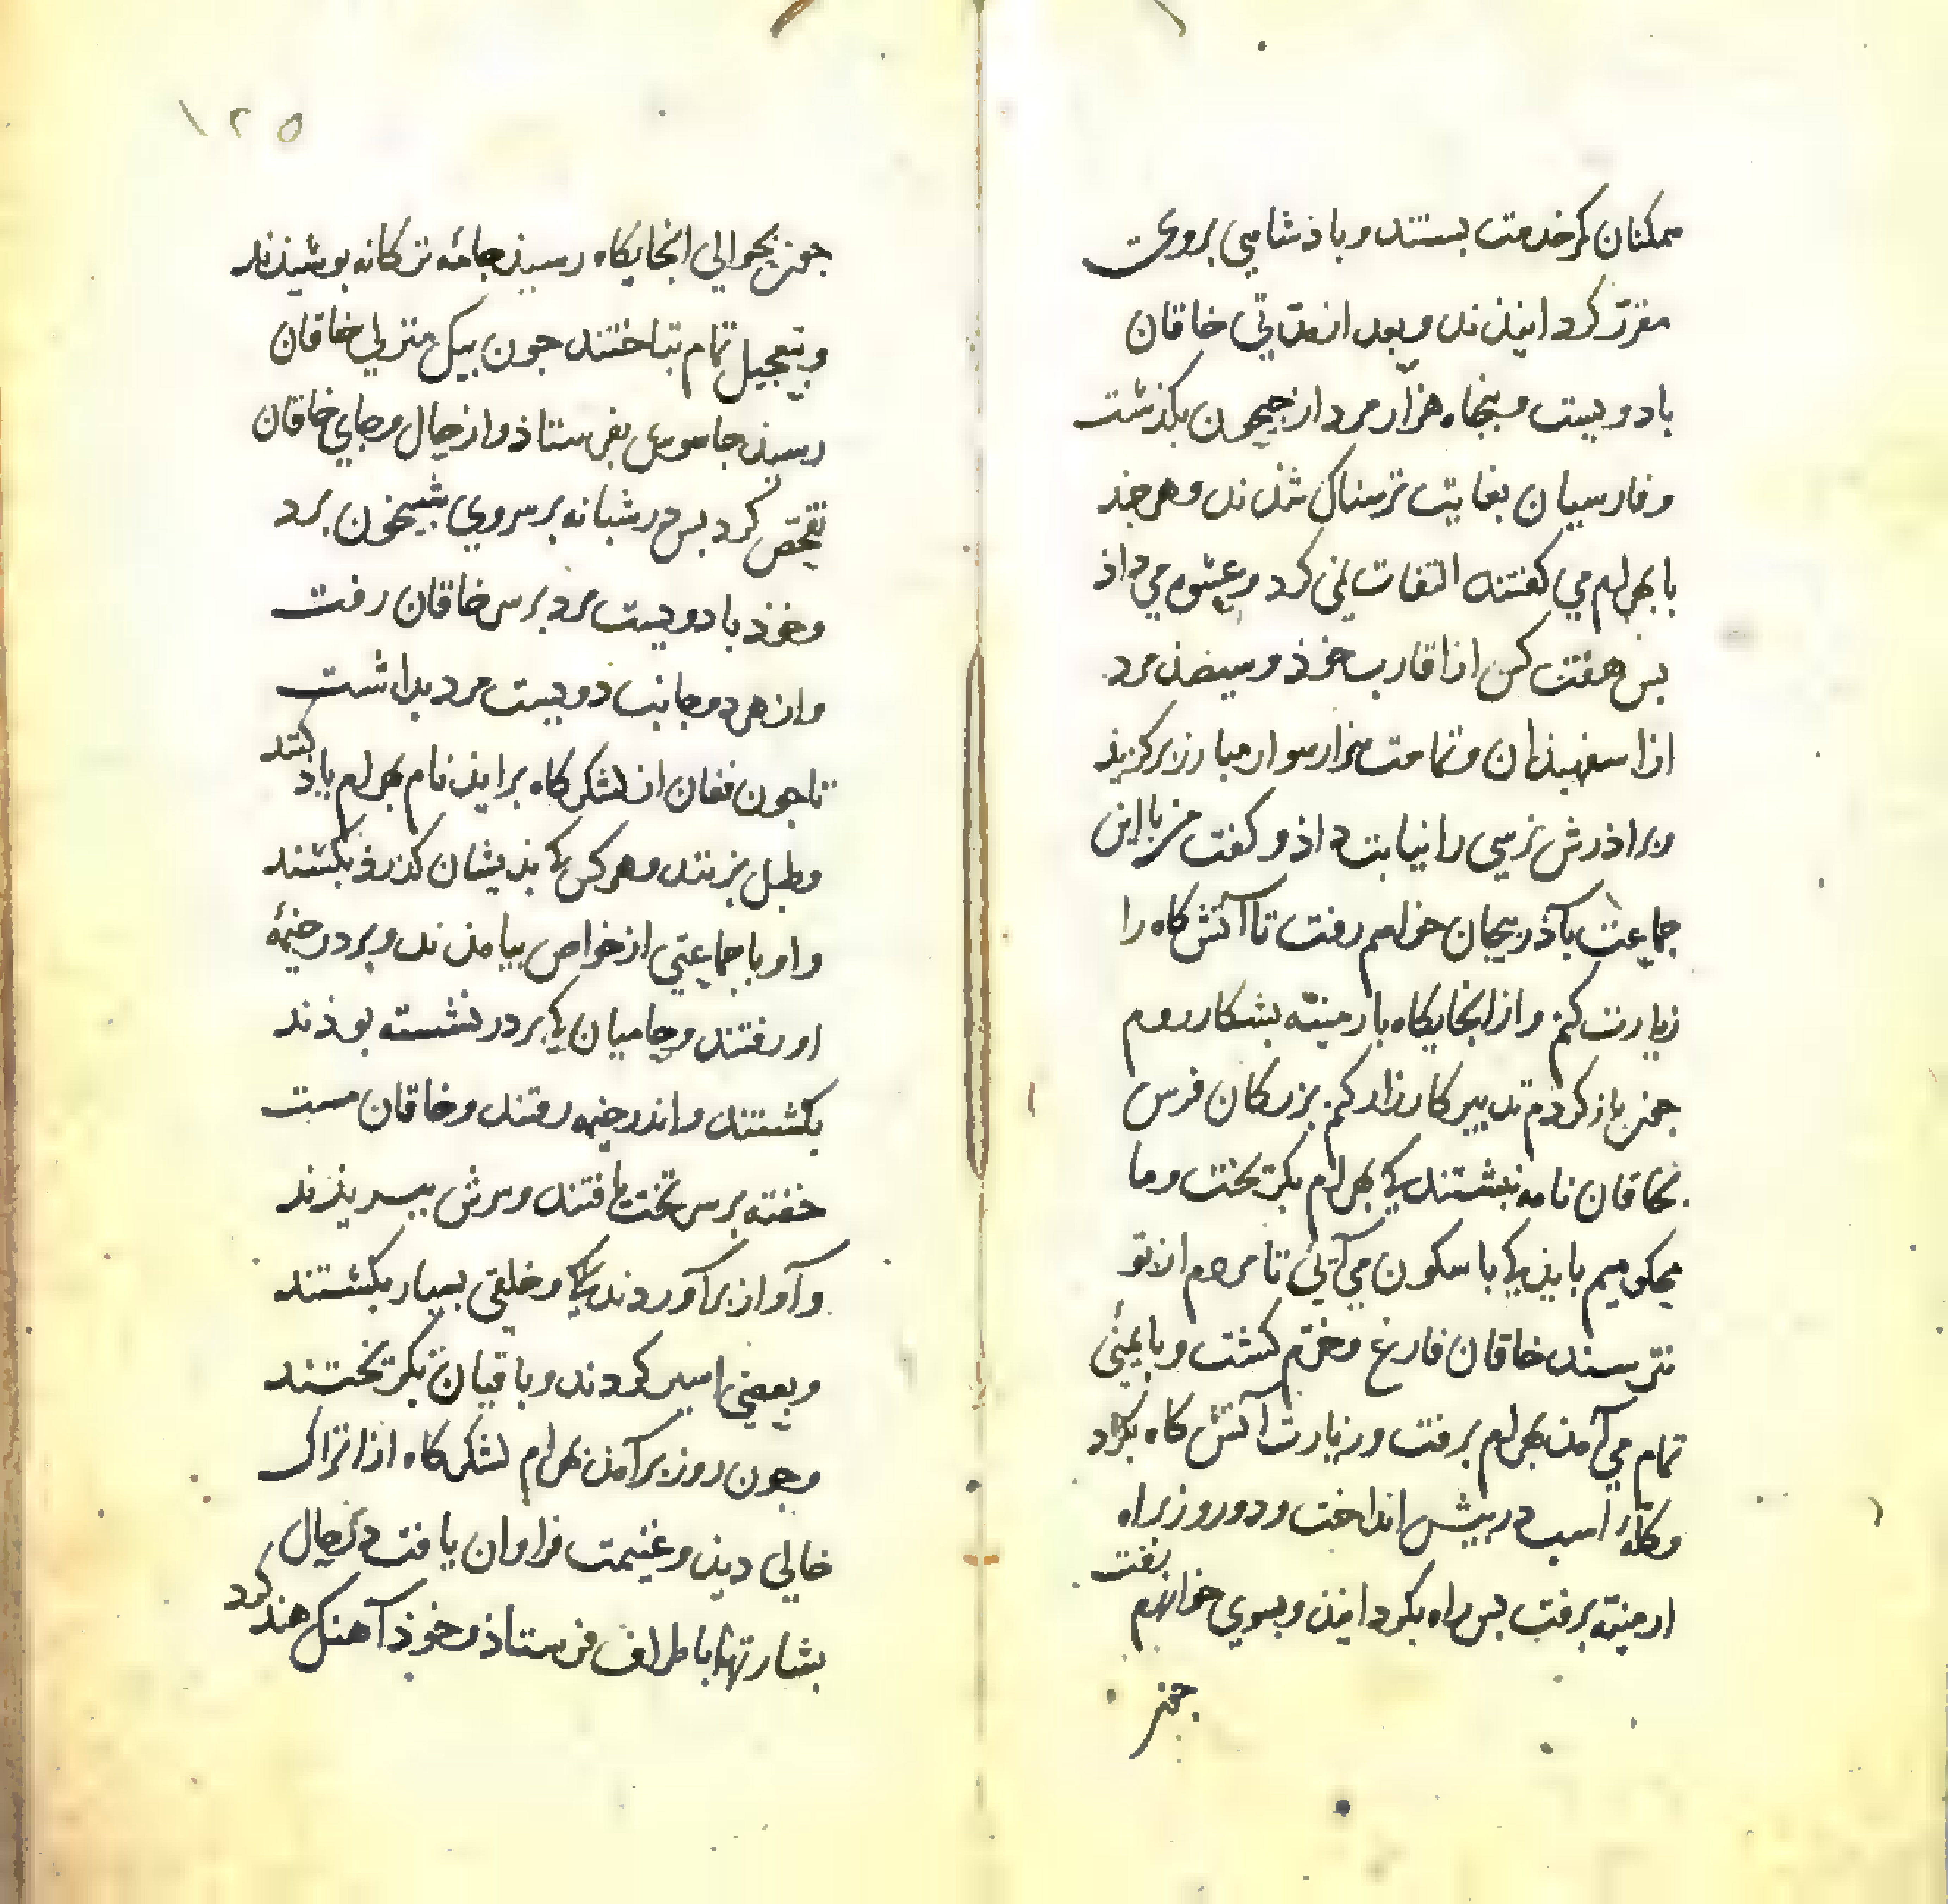 همکنان کمر خدمت بستند و باذشاهی بروی
مقرر کردانیذند و بعد از مدتی خاقان
با دویست و پنجاه هزار مرد از جیحون بکذشت
و فارسیان بغایت ترسناک شذند و هرجند
با بهرام می کفتند التفات نمی کرد و عشوه می داذ
بس هفت کس از اقارب خوذ و سیصذ مرد
از اسفهبذان و تمامت هزار سوار مبارز برکزیذ
و براذرش نرسی را نیابت داذ و کفت من با این
جماعت بآذربیجان خواهم رفت تا آتش کاه را
زیارت کنم و از انجایکاه بارمینیه بشکار روم
جون باز کردم تدبیر کارزار کنم بزرکان فرس
بخاقان نامه نبشتند کی بهرام بکریخت و ما
میکوییم بایذ کی با سکون می آئی تا مردم از تو
نترسند خاقان فارغ و خرم کشت و بایمنی
تمام می آمذ بهرام برفت و زیارت آتش کاه بکرد
و کلۀ اسب در بیش انداخت و دو روز براه
ارمینیه برفت بس راه بکردانیذ و بسوی خوارزم برفت
جون
۱۲۵
جون بحوالی انجایکاه رسیذ جامۀ ترکانه بوشیذند
و بتعجیل تمام بتاختند جون بیک منزلی خاقان
رسیذ جاسوس بفرستاذ و از حال و جای خاقان
تفحص کرد بس در شبانه بر سر وی شبیخون برد
و خوذ با دویست مرد بر سر خاقان رفت
و از هر دو جانب دویست مرد بداشت
تا جون فغان از لشکرکاه برایذ نام بهرام یاد کنند
و طبل بزنند و هر کس کی بذیشان کذرذ بکشند
و او با جماعتی از خواص بیامذند و بر در خیمۀ
او رفتند و حامیان کی بر در نشسته بوذند
بکشتند و اندر خیمه رفتند و خاقان مست
خفته بر سر تخت یافتند و سرش ببریذند
و آواز برآوردند و خلقی بسیار بکشتند
و بعضی اسیر کردند و باقیان بکریختند
و جون روز برآمذ بهرام لشکرکاه از اتراک
خالی دیذ و غنیمت فراوان یافت در حال
بشارتها باطراف فرستاذ و خوذ آهنک هند کرد